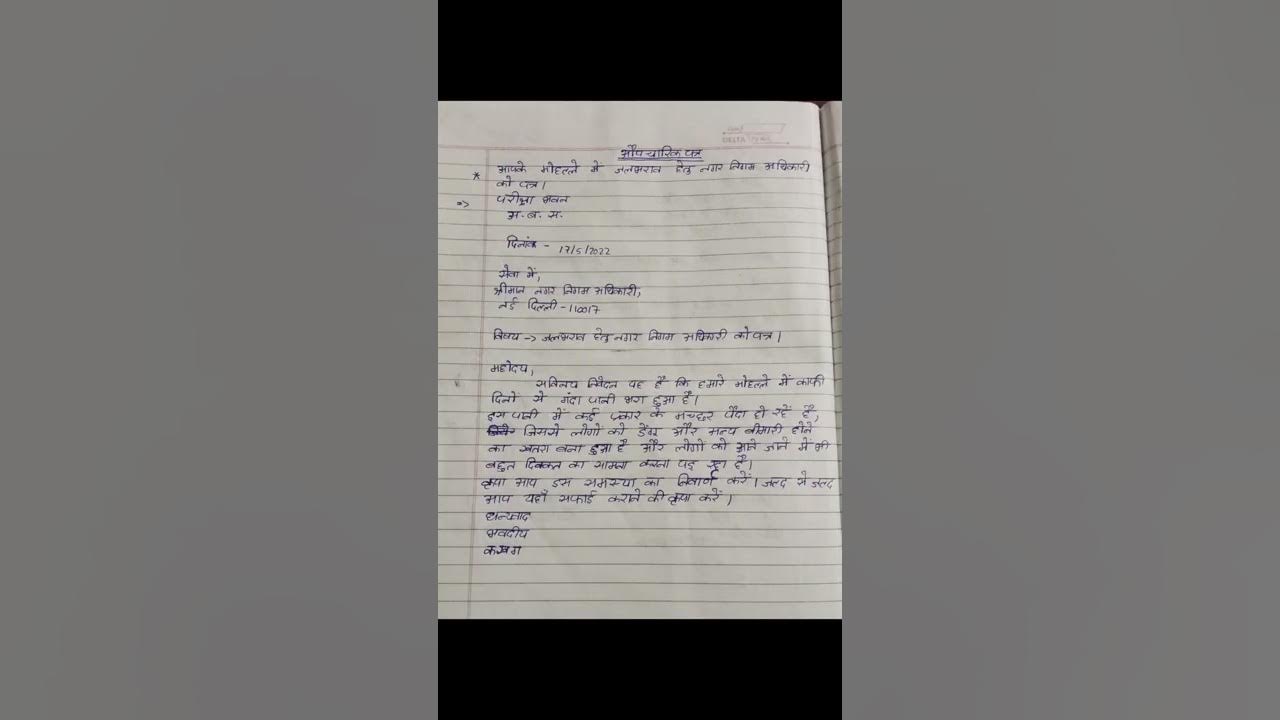 औपचारिक पत्र
* आपके मोहल्ले में जलभराव हेतु नगर निगम अधिकारी
को पत्र।
=> परीक्षा भवन
अ.ब.स.
दिनांक - 17/5/2022
सेवा में,
श्रीमान नगर निगम अधिकारी,
नई दिल्ली - 110017
विषय -> जलभराव हेतु नगर निगम अधिकारी को पत्र।
महोदय,
सविनय निवेदन यह है कि हमारे मोहल्ले में काफी
दिनों से गंदा पानी भरा हुआ है।
इस पानी में कई प्रकार के मच्छर पैदा हो रहें है,
जिससे लोगों को डेंगू और अन्य बीमारी होने
का खतरा बना हुआ है और लोगों को आने जाने में भी
बहुत दिक्कत का सामना करना पड़ रहा है।
कृपा आप इस समस्या का निवार्ण करें। जल्द से जल्द
आप यहाँ सफाई कराने की कृपा करें।
धन्यवाद
भवदीय
क ख ग